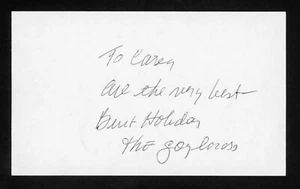 To Carey
All the very best
Burt Holiday
the gaylords